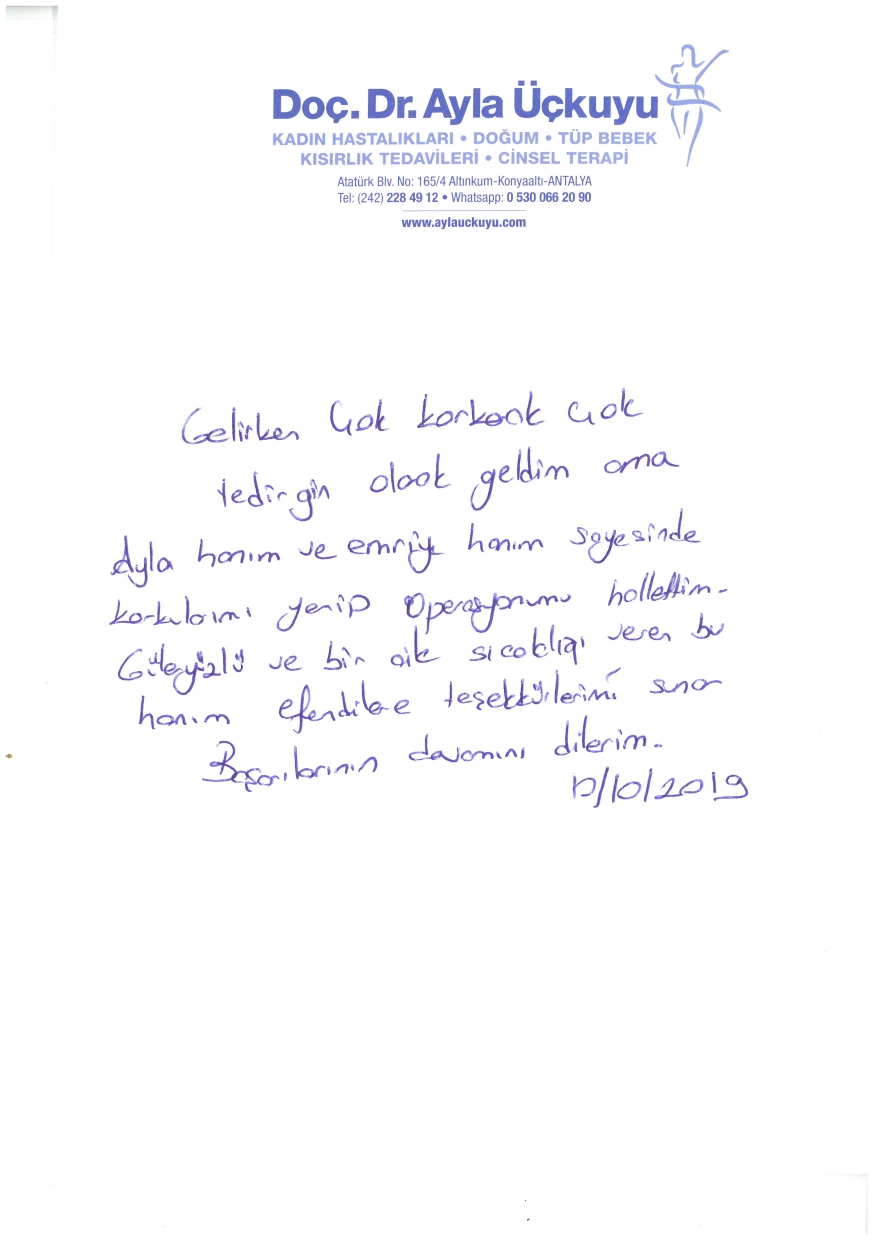 Doç. Dr. Ayla Üçkuyu
KADIN HASTALIKLARI • DOĞUM • TÜP BEBEK
KISIRLIK TEDAVİLERİ • CİNSEL TERAPİ
Atatürk Blv. No: 165/4 Altınkum-Konyaaltı-ANTALYA
Tel: (242) 228 49 12 • Whatsapp: 0 530 066 20 90
www.aylauckuyu.com
Gelirken Çok korkarak çok
tedirgin olarak geldim ama
Ayla hanım ve hanım sayesinde
korkularımı yenip operasyonumu hallettim.
Güleryüzlü ve bir aile sıcaklığı veren bu
hanım efendilere teşekkürlerimi sunar
Başarılarının devamını dilerim.
/10/2019